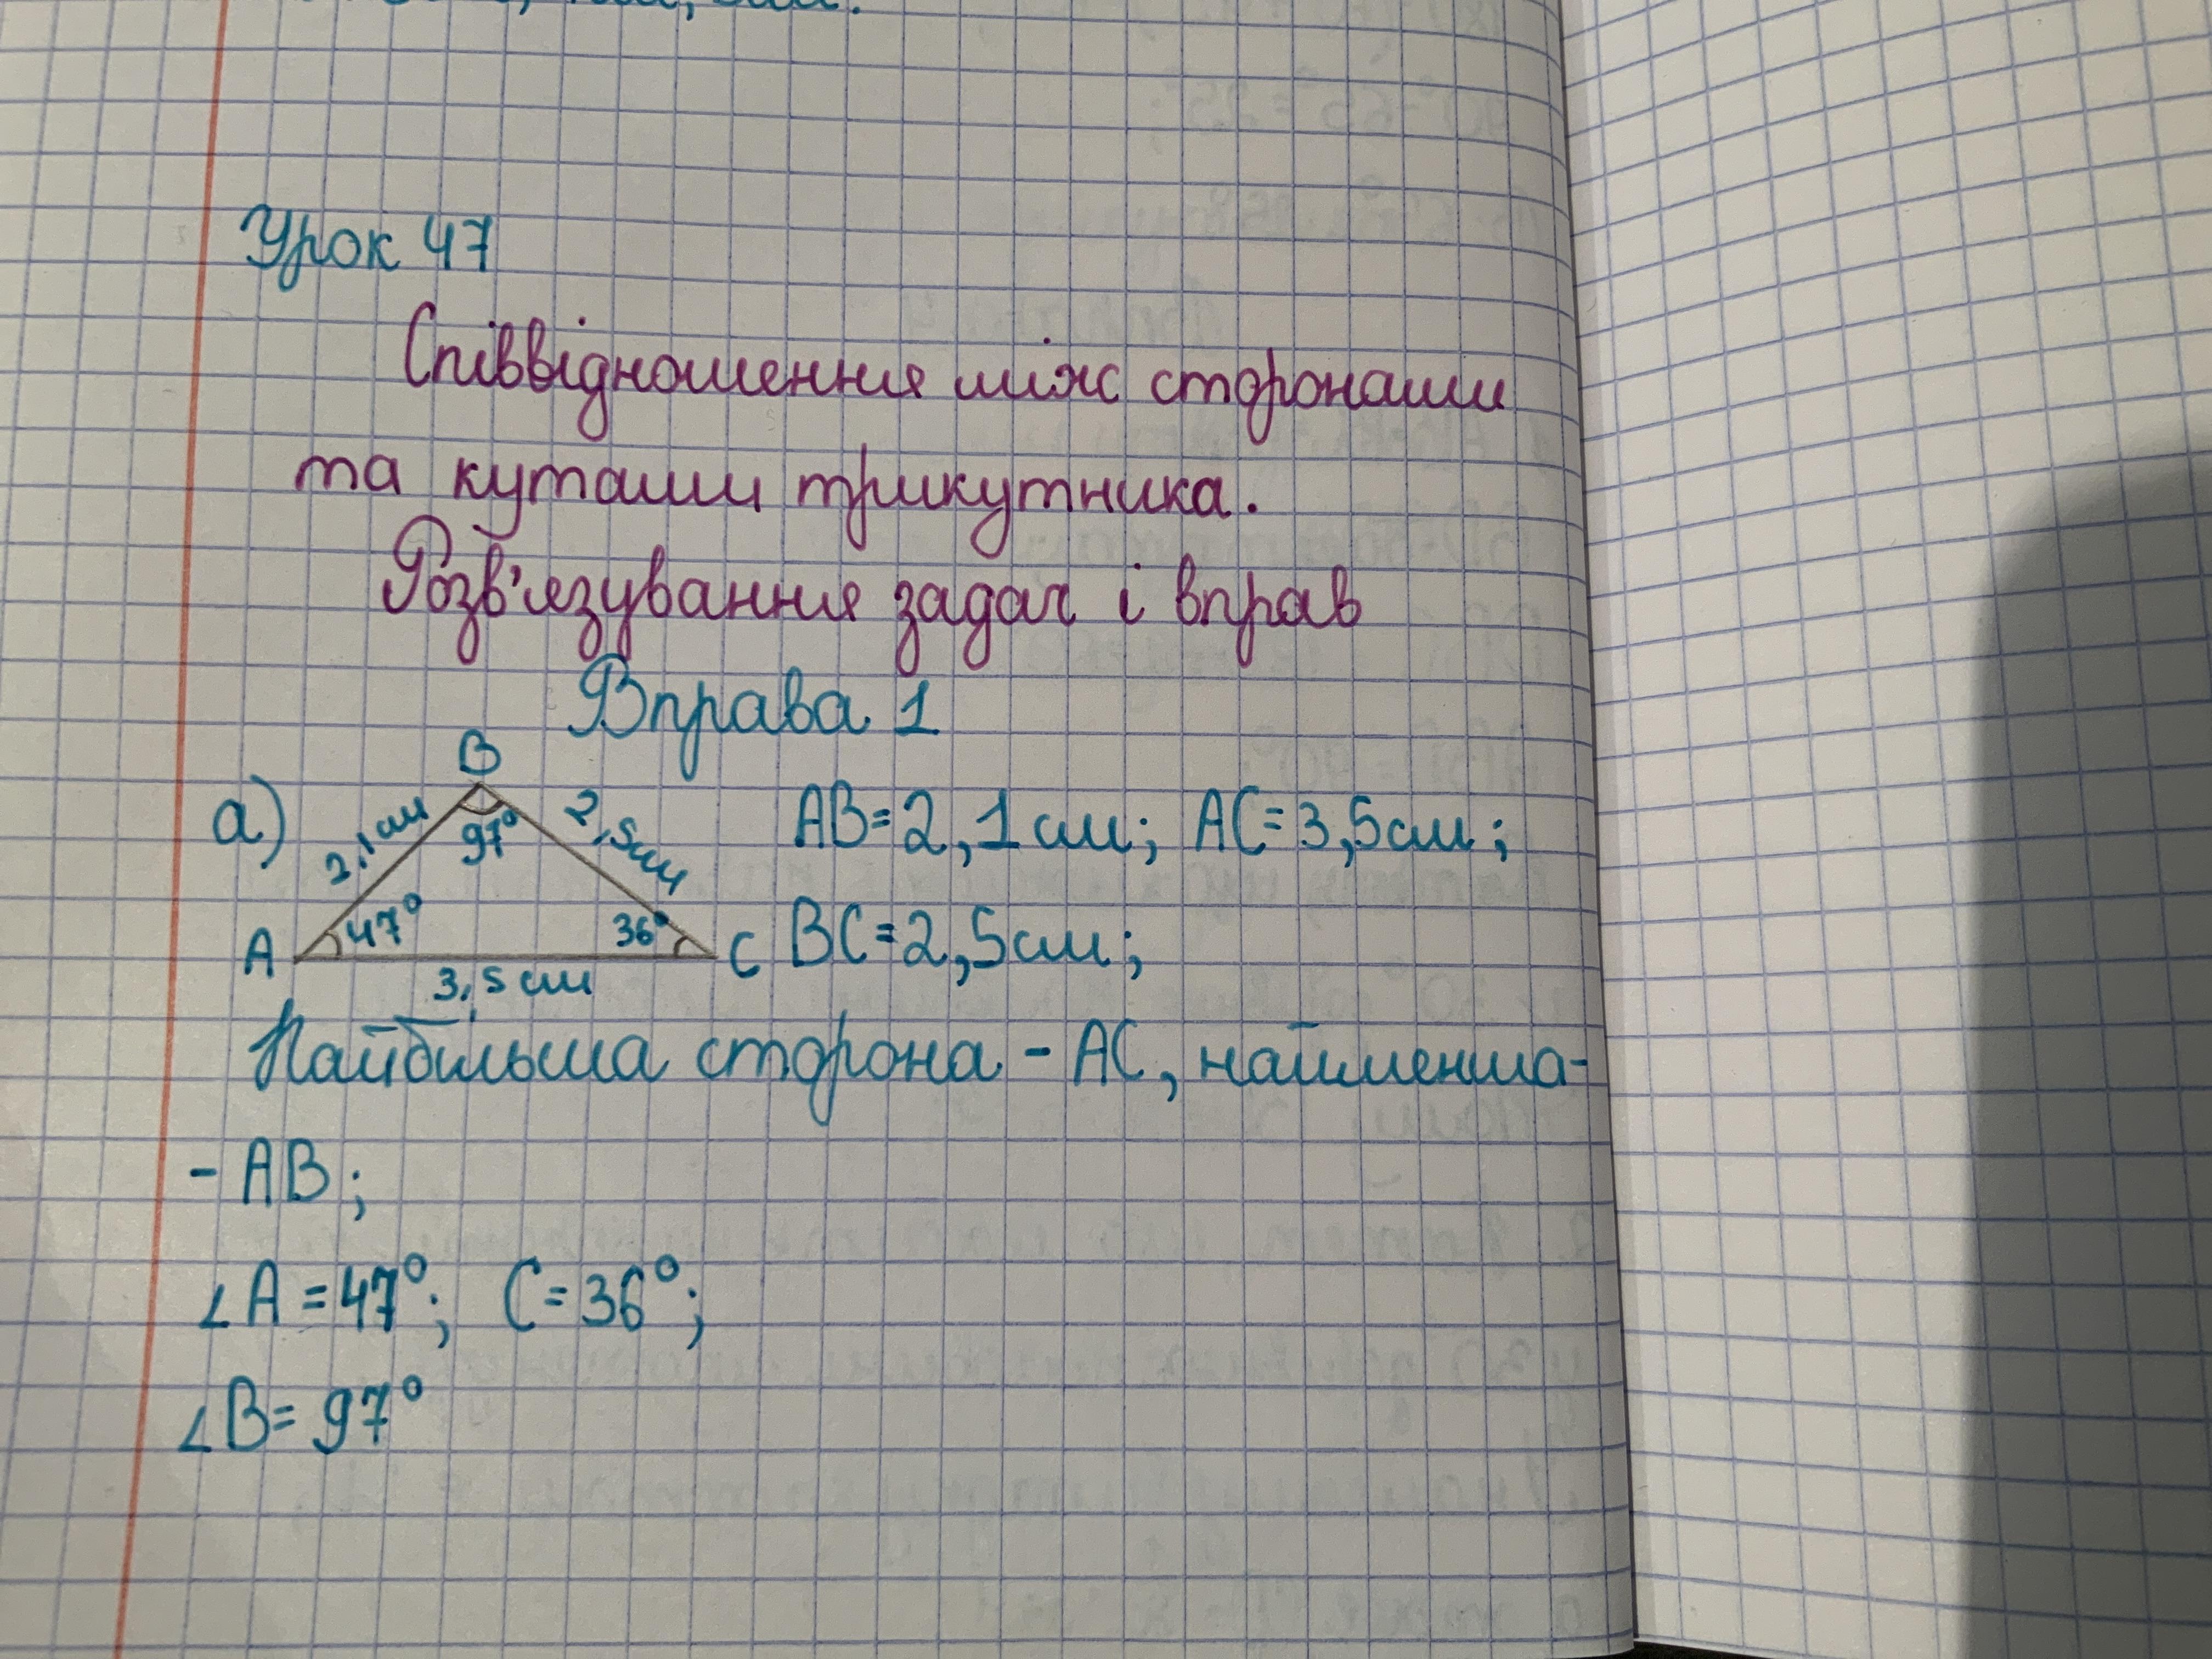 Урок 47
Співвідношення між сторонами
та кутами трикутника.
Розв'язування задач і вправ
Вправа 1
а)
B
2,1 см
97°
2,5 см
A
47°
36°
C
3,5 см
AB=2,1 см; AC=3,5 см;
BC=2,5 см;
Найбільша сторона - AC, найменша-
- AB;
∠A=47°; C=36°;
∠B=97°